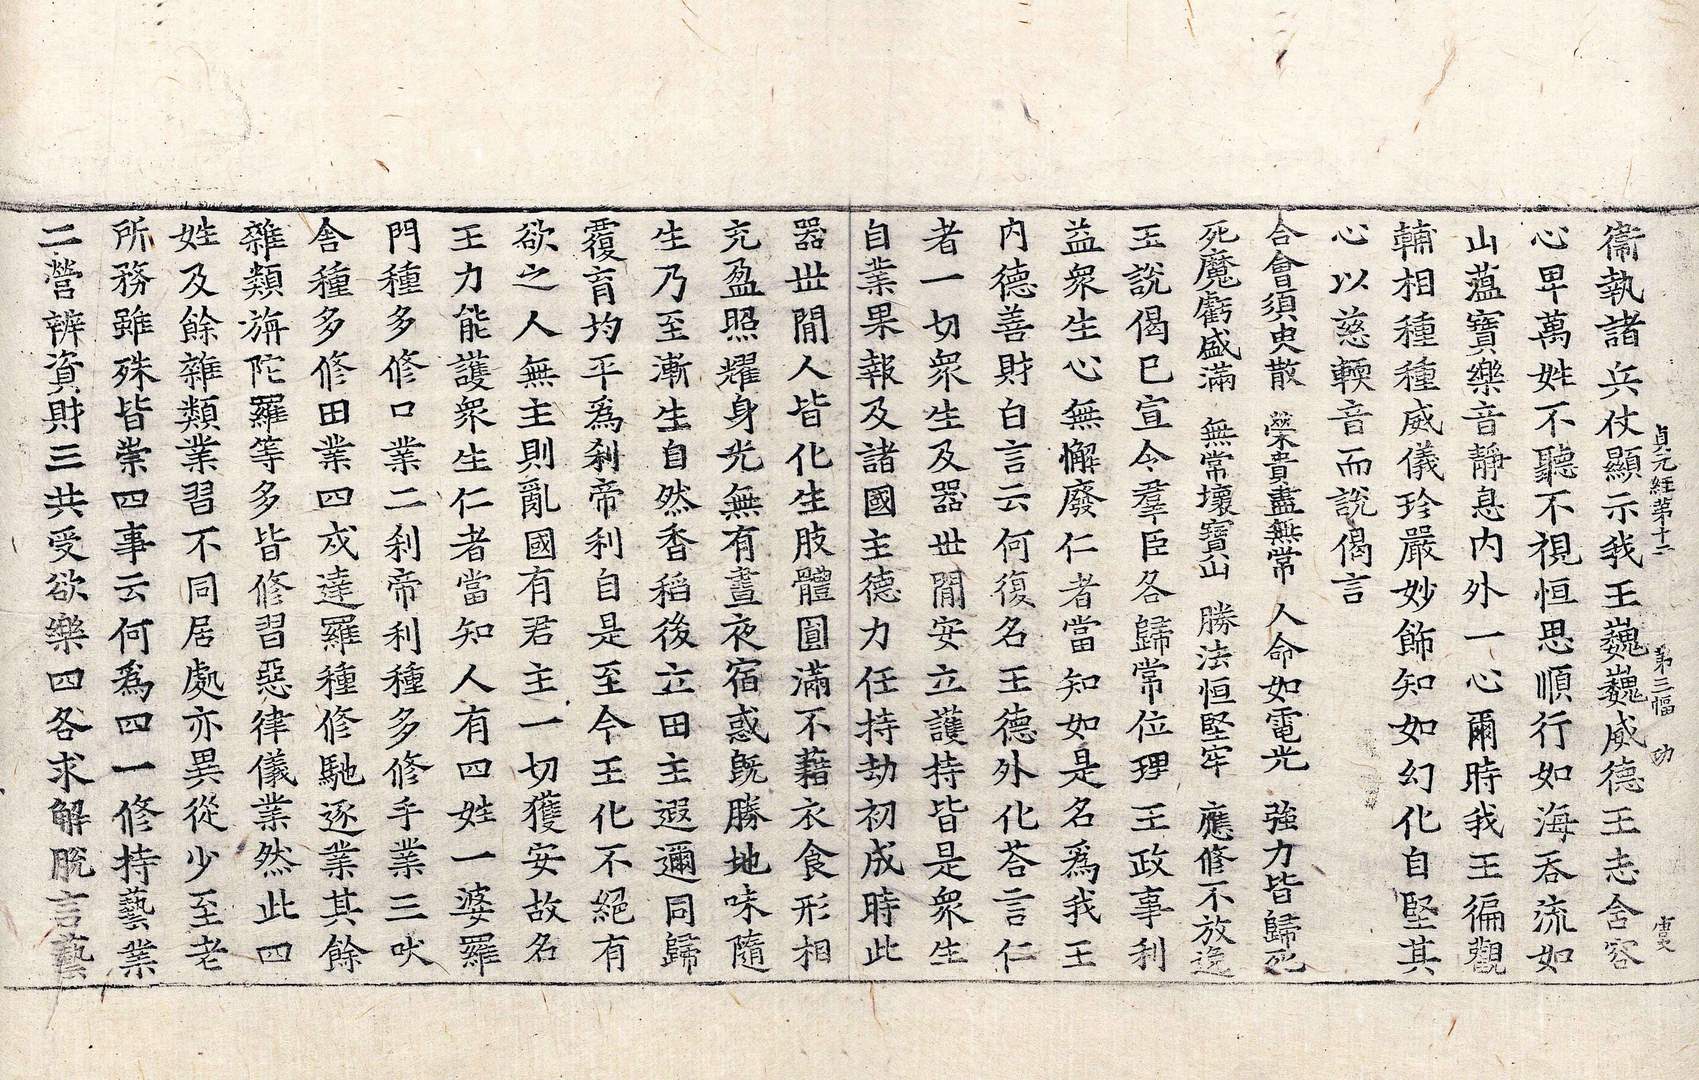 貞元經第十二 第三幅 功
衞執諸兵仗顯示我王巍巍威德王志含容
心卑萬姓不聽不視恒思順行如海吞流如
山薀寶樂音靜息内外一心爾時我王徧觀
輔相種種威儀珍嚴妙飾知如幻化自堅其
心以慈輭音而說偈言
合會須㬰散 榮貴盡無常 人命如電光 強力皆歸死
死魔虧盛滿 無常壞寶山 勝法恒堅牢 應修不放逸
王說偈已宣令羣臣各歸常位理王政事利
益衆生心無懈廢仁者當知如是名爲我王
内德善財白言云何復名王德外化荅言仁
者一切衆生及器世間安立護持皆是衆生
自業果報及諸國主德力任持劫初成時此
器世間人皆化生肢體圓滿不藉衣食形相
充盈照耀身光無有晝夜宿惑旣勝地味隨
生乃至漸生自然香稻後立田主遐邇同歸
覆育均平爲刹帝利自是至今王化不絕有
欲之人無主則亂國有君主一切獲安故名
王力能護衆生仁者當知人有四姓一婆羅
門種多修口業二刹帝利種多修手業三吠
舍種多修田業四戍達羅種修馳逐業其餘
雜類旃陀羅等多皆修習惡律儀業然此四
姓及餘雜類業習不同居處亦異從少至老
所務雖殊皆崇四事云何爲四一修持藝業
二營辨資財三共受欲樂四各求解脫言藝